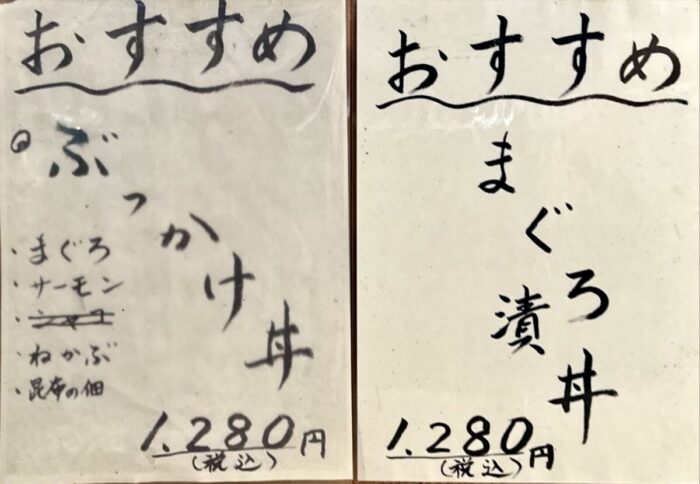 おすすめ
ぶっかけ丼
・まぐろ
・サーモン
・ねかぶ
・昆布の佃
1.280円
(税込)
おすすめ
まぐろ漬丼
1.280円
(税込)